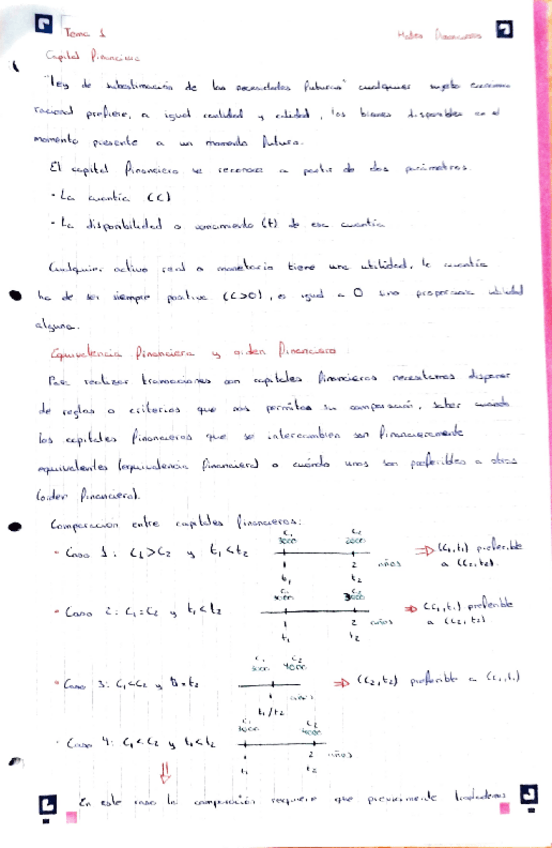 Tema 1
Mates Financieras
Capital Financiero
"Ley de subestimación de las necesidades futuras" cualquier sujeto económico
racional prefiere, a igual cantidad y calidad, los bienes disponibles en el
momento presente a un momento futuro.
El capital financiero se reconoce a partir de dos parámetros.
· La cuantía (C)
· La disponibilidad o vencimiento (t) de esa cuantía
Cualquier activo real o monetario tiene una utilidad, la cuantía
ha de ser siempre positiva (C>0), es igual a 0 sino proporciona utilidad
alguna.
Equivalencia financiera y orden financiero
Para realizar transacciones con capitales financieros necesitamos disponer
de reglas o criterios que nos permitan su comparación, saber cuando
los capitales financieros que se intercambien son financieramente
equivalentes (equivalencia financiera) o cuándo unos son preferibles a otros
(orden financiero).
Comparación entre capitales financieros:
· Caso 1: C₁>C₂ y t₁<t₂
C₁ C₂
3000 2000
1 2 años
t₁ t₂
⇒ (C₁,t₁) preferible
a (C₂,t₂).
· Caso 2: C₁=C₂ y t₁<t₂
C₁ C₂
3000
1 2 años
t₁ t₂
⇒ (C₁,t₁) preferible
a (C₂,t₂)
· Caso 3: C₁<C₂ y t₁=t₂
C₁ C₂
3000 4000
1 años
t₁/t₂
⇒ (C₂,t₂) preferible a (C₁,t₁)
· Caso 4: C₁<C₂ y t₁<t₂
C₁ C₂
4000
1 2 años
t₁ t₂
⇓
En este caso la comparación requiere que previamente